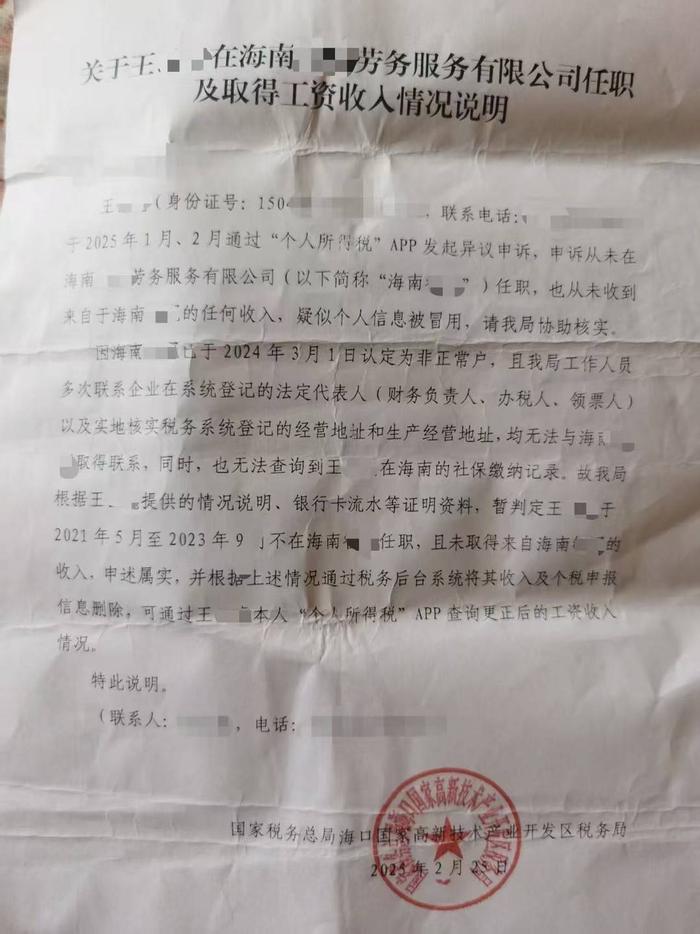 关于王 在海南 劳务服务有限公司任职
及取得工资收入情况说明
王 （身份证号：150 ，联系电话：
于2025年1月、2月通过“个人所得税”APP发起异议申诉，申诉从未在
海南 劳务服务有限公司（以下简称“海南 ”）任职，也从未收到
来自于海南 的任何收入，疑似个人信息被冒用，请我局协助核实。
因海南 已于2024年3月1日认定为非正常户，且我局工作人员
多次联系企业在系统登记的法定代表人（财务负责人、办税人、领票人）
以及实地核实税务系统登记的经营地址和生产经营地址，均无法与海南
取得联系，同时，也无法查询到王 在海南的社保缴纳记录。故我局
根据王 提供的情况说明、银行卡流水等证明资料，暂判定王 于
2021年5月至2023年9 不在海南 任职，且未取得来自海南 的
收入，申述属实，并根据上述情况通过税务后台系统将其收入及个税申报
信息删除，可通过王 本人“个人所得税”APP查询更正后的工资收入
情况。
特此说明。
（联系人： ，电话：
国家税务总局海口国家高新技术产业开发区税务局
2025年2月25日